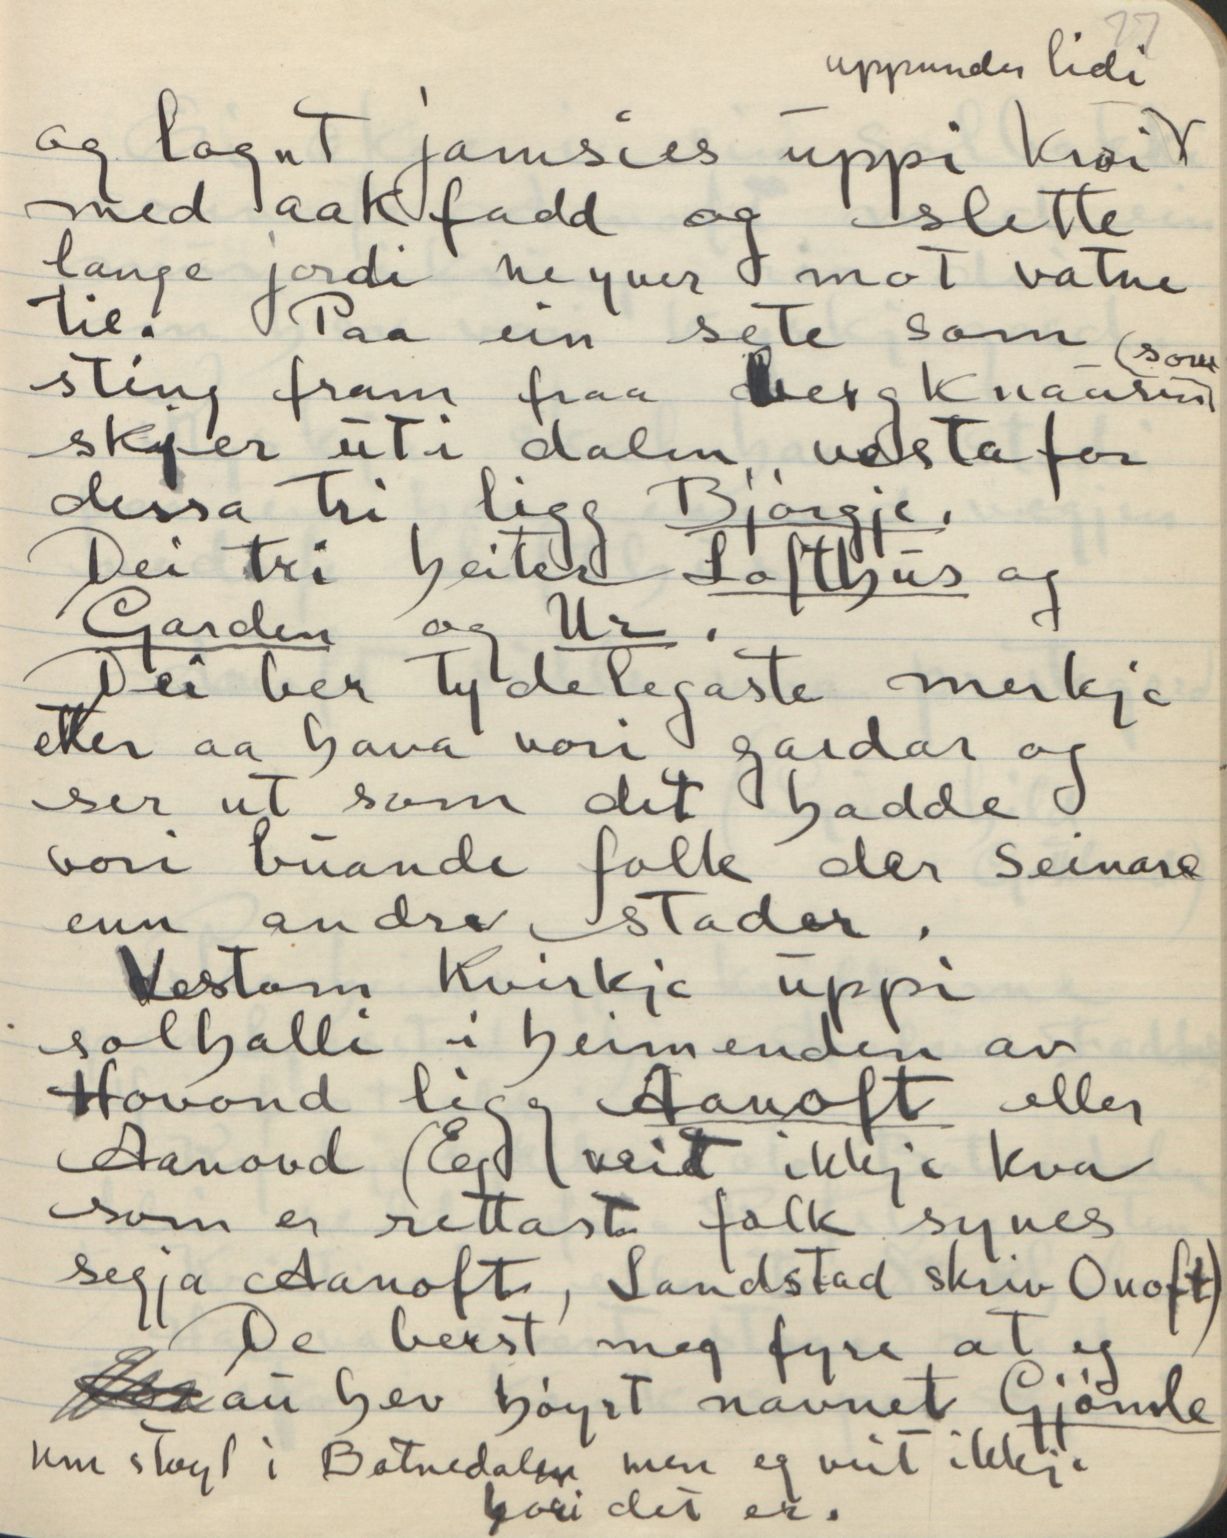 77
uppunder lidi
og lagnt jamsies uppi kvi
med aakfadd og slette
lange jordi neyver mot vatne
til. Paa ein sete som
sting fram fraa bergknausin (som
skjer uti dalen, vestafor
dessa tri, ligg Bjórgje.
Dei tri heiter Lofthus og
Garden og Ur.
Dei ber tydelegaste merkje
etter aa hava vori gardar og
ser ut som det hadde
vori buande folk der seinare
enn andre stader.
Vestom Kvirkje uppi
solhalli i heimenden av
Hovond ligg Aanoft eller
Aanovd (Eg veit ikkje kva
som er rettast folk synes
segja Aanoft, Landstad skriv Onoft)
De berst meg fyre at eg
au hev höyrt navnet Gjömle
um stoyl i Botnedalen men eg veit ikkje
hori det er.